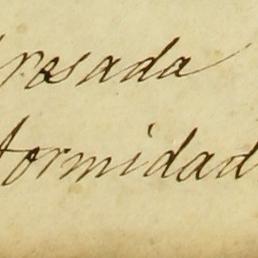 rosada
formidad